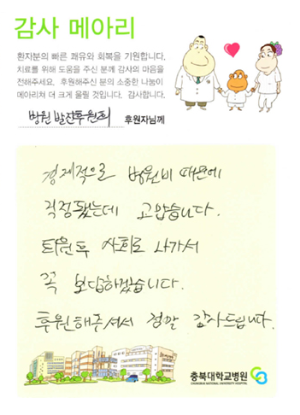 감사 메아리
환자분의 빠른 쾌유와 회복을 기원합니다.
치료를 위해 도움을 주신 분께 감사의 마음을
전해주세요. 후원해주신 분의 소중한 나눔이
메아리쳐 더 크게 울릴 것입니다. 감사합니다.
병원 발전후원회 후원자님께
경제적으로 병원비 때문에
걱정됐는데 고맙습니다.
퇴원후 사회로 나가서
꼭 보답하겠습니다.
후원해주셔서 정말 감사드립니다.
충북대학교병원
CHUNGBUK NATIONAL UNIVERSITY HOSPITAL